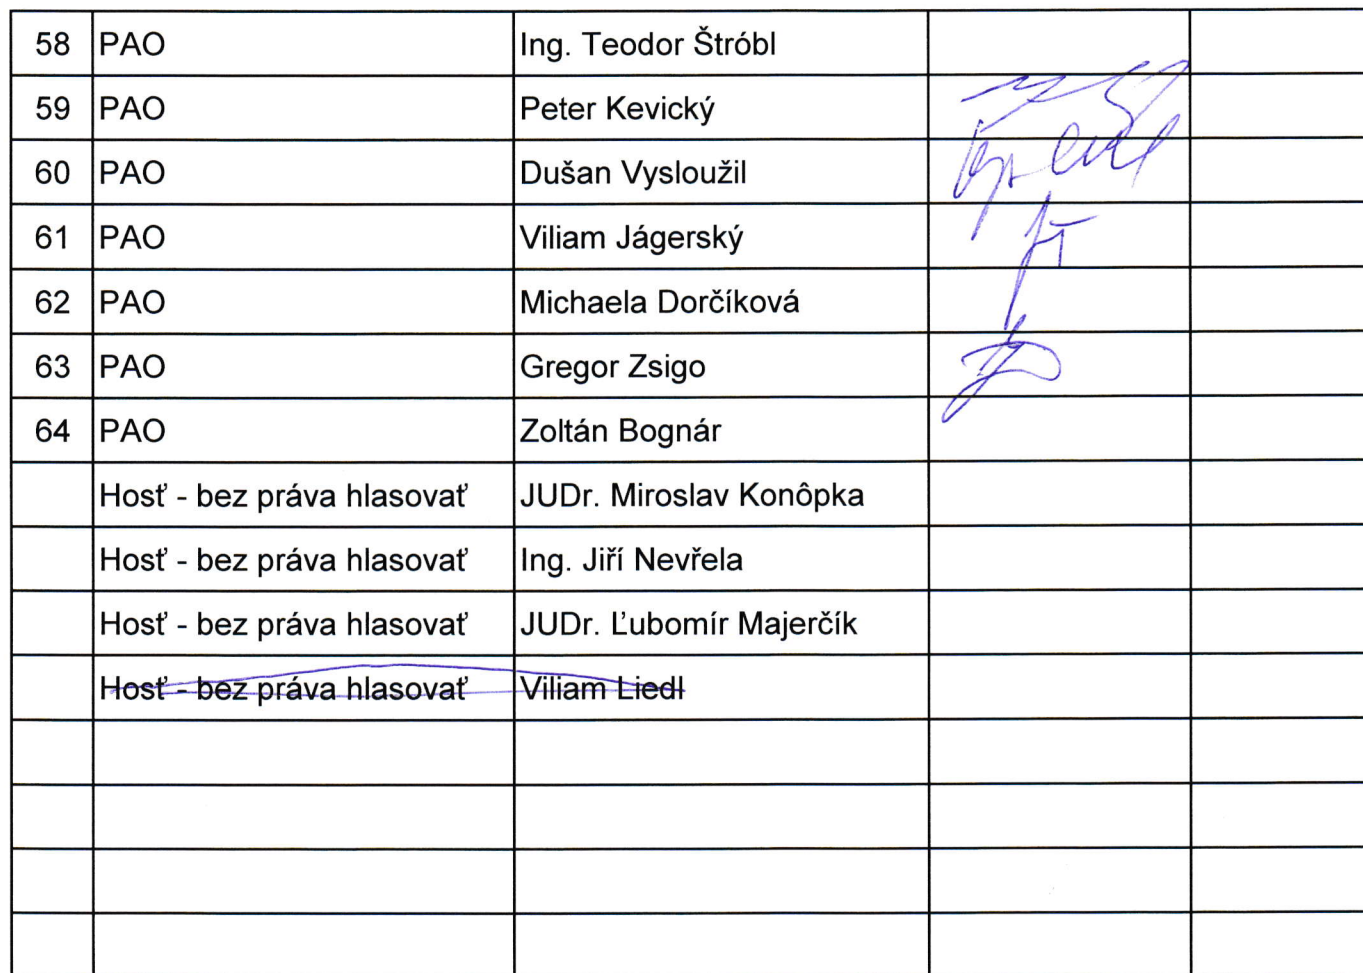 58 PAO Ing. Teodor Štróbl
59 PAO Peter Kevický
60 PAO Dušan Vysloužil
61 PAO Viliam Jágerský
62 PAO Michaela Dorčíková
63 PAO Gregor Zsigo
64 PAO Zoltán Bognár
Hosť - bez práva hlasovať JUDr. Miroslav Konôpka
Hosť - bez práva hlasovať Ing. Jiří Nevřela
Hosť - bez práva hlasovať JUDr. Ľubomír Majerčík
Hosť - bez práva hlasovať Viliam Liedl